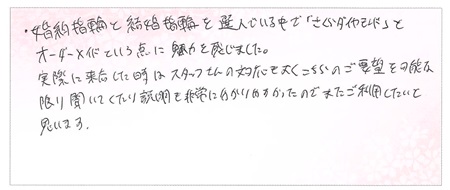 ・婚約指輪と結婚指輪を選んでいる中で「さくらダイヤモンド」と
オーダーメイドという点に魅力を感じました。
実際に来店した時はスタッフさんの対応も良くこちらのご要望を可能な
限り聞いてくれたり説明も非常に分かりやすかったのでまたご利用したいと
思います。